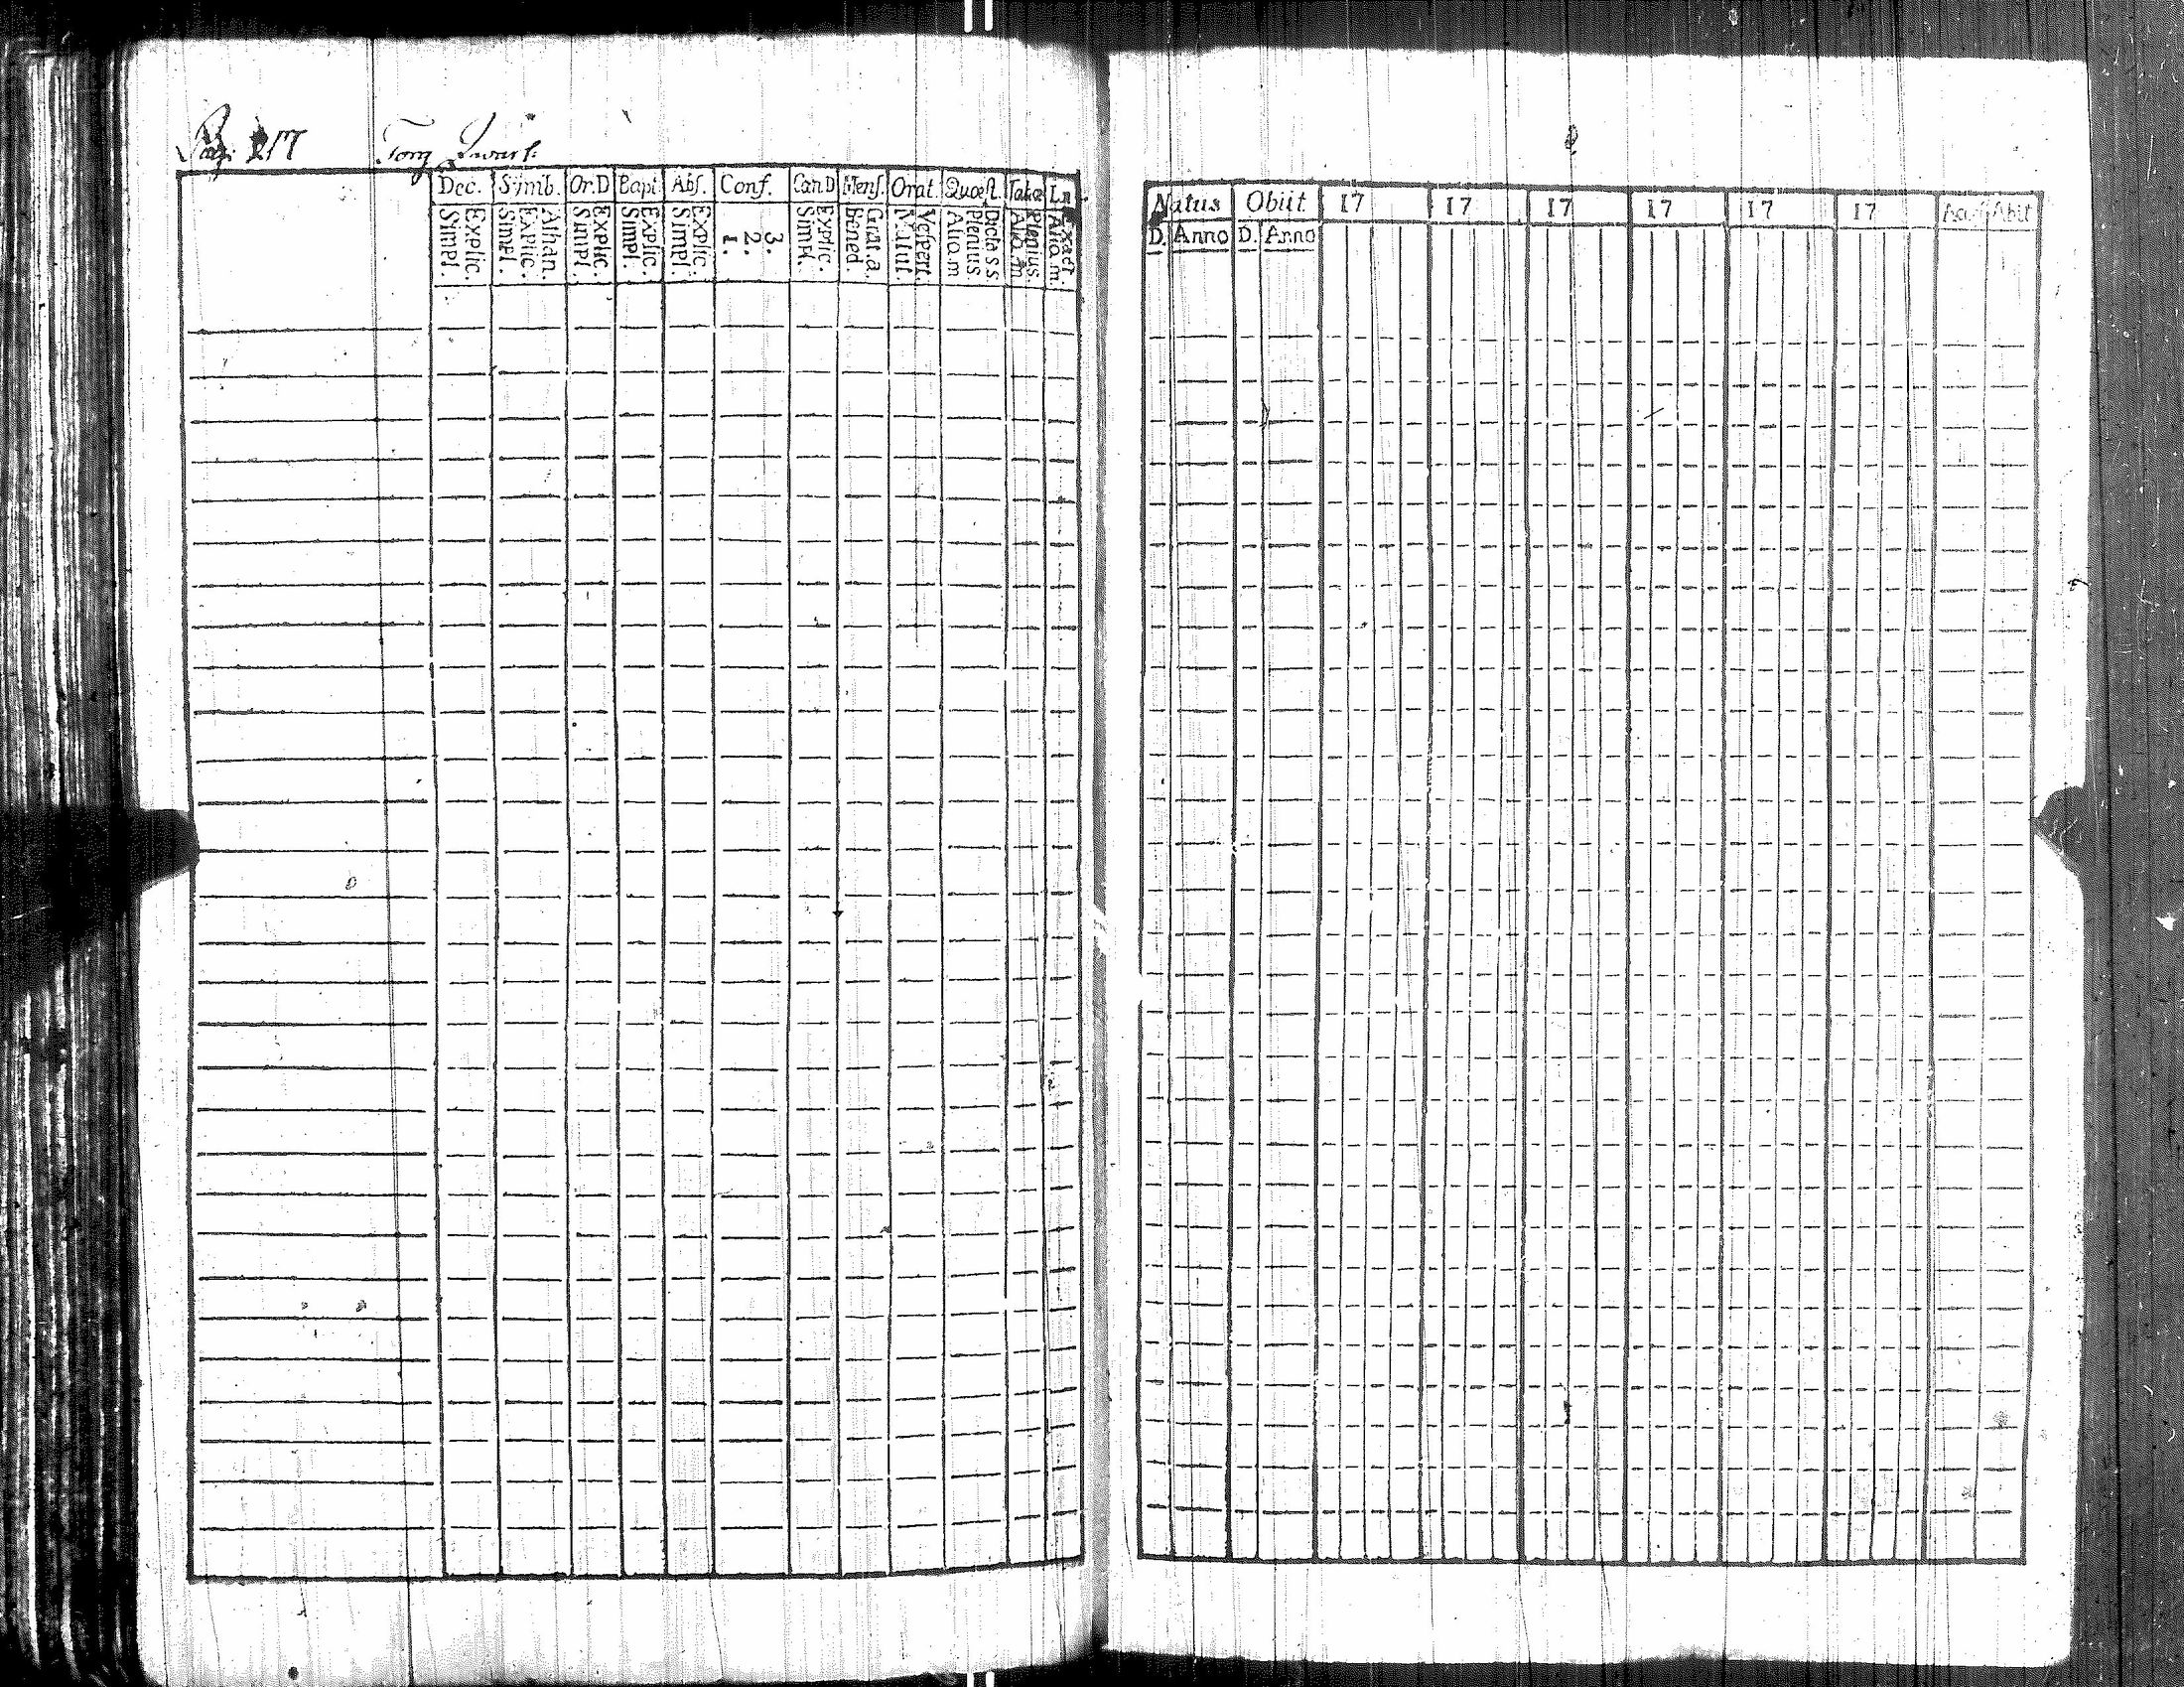 Pag: 217 Torg Qwart:
Dec. Simb. Or.D Bapt. Abs. Conf. Can.D Mens. Orat. Quæst. Tabæ L.n
Explic. Simpl. Athan. Explic. Simpl. Explic. Simpl. Explic. Simpl. Explic. Simpl. 3. 2. 1. Explic. Simpl. Grat. a. Bened. Vespert. Matut. Dict. s s. Plenius Aliq.m Plenius. Aliq.m Exact. Aliq.m.
Natus Obiit 17 17 17 17 17 17 Abit
D. Anno D. Anno